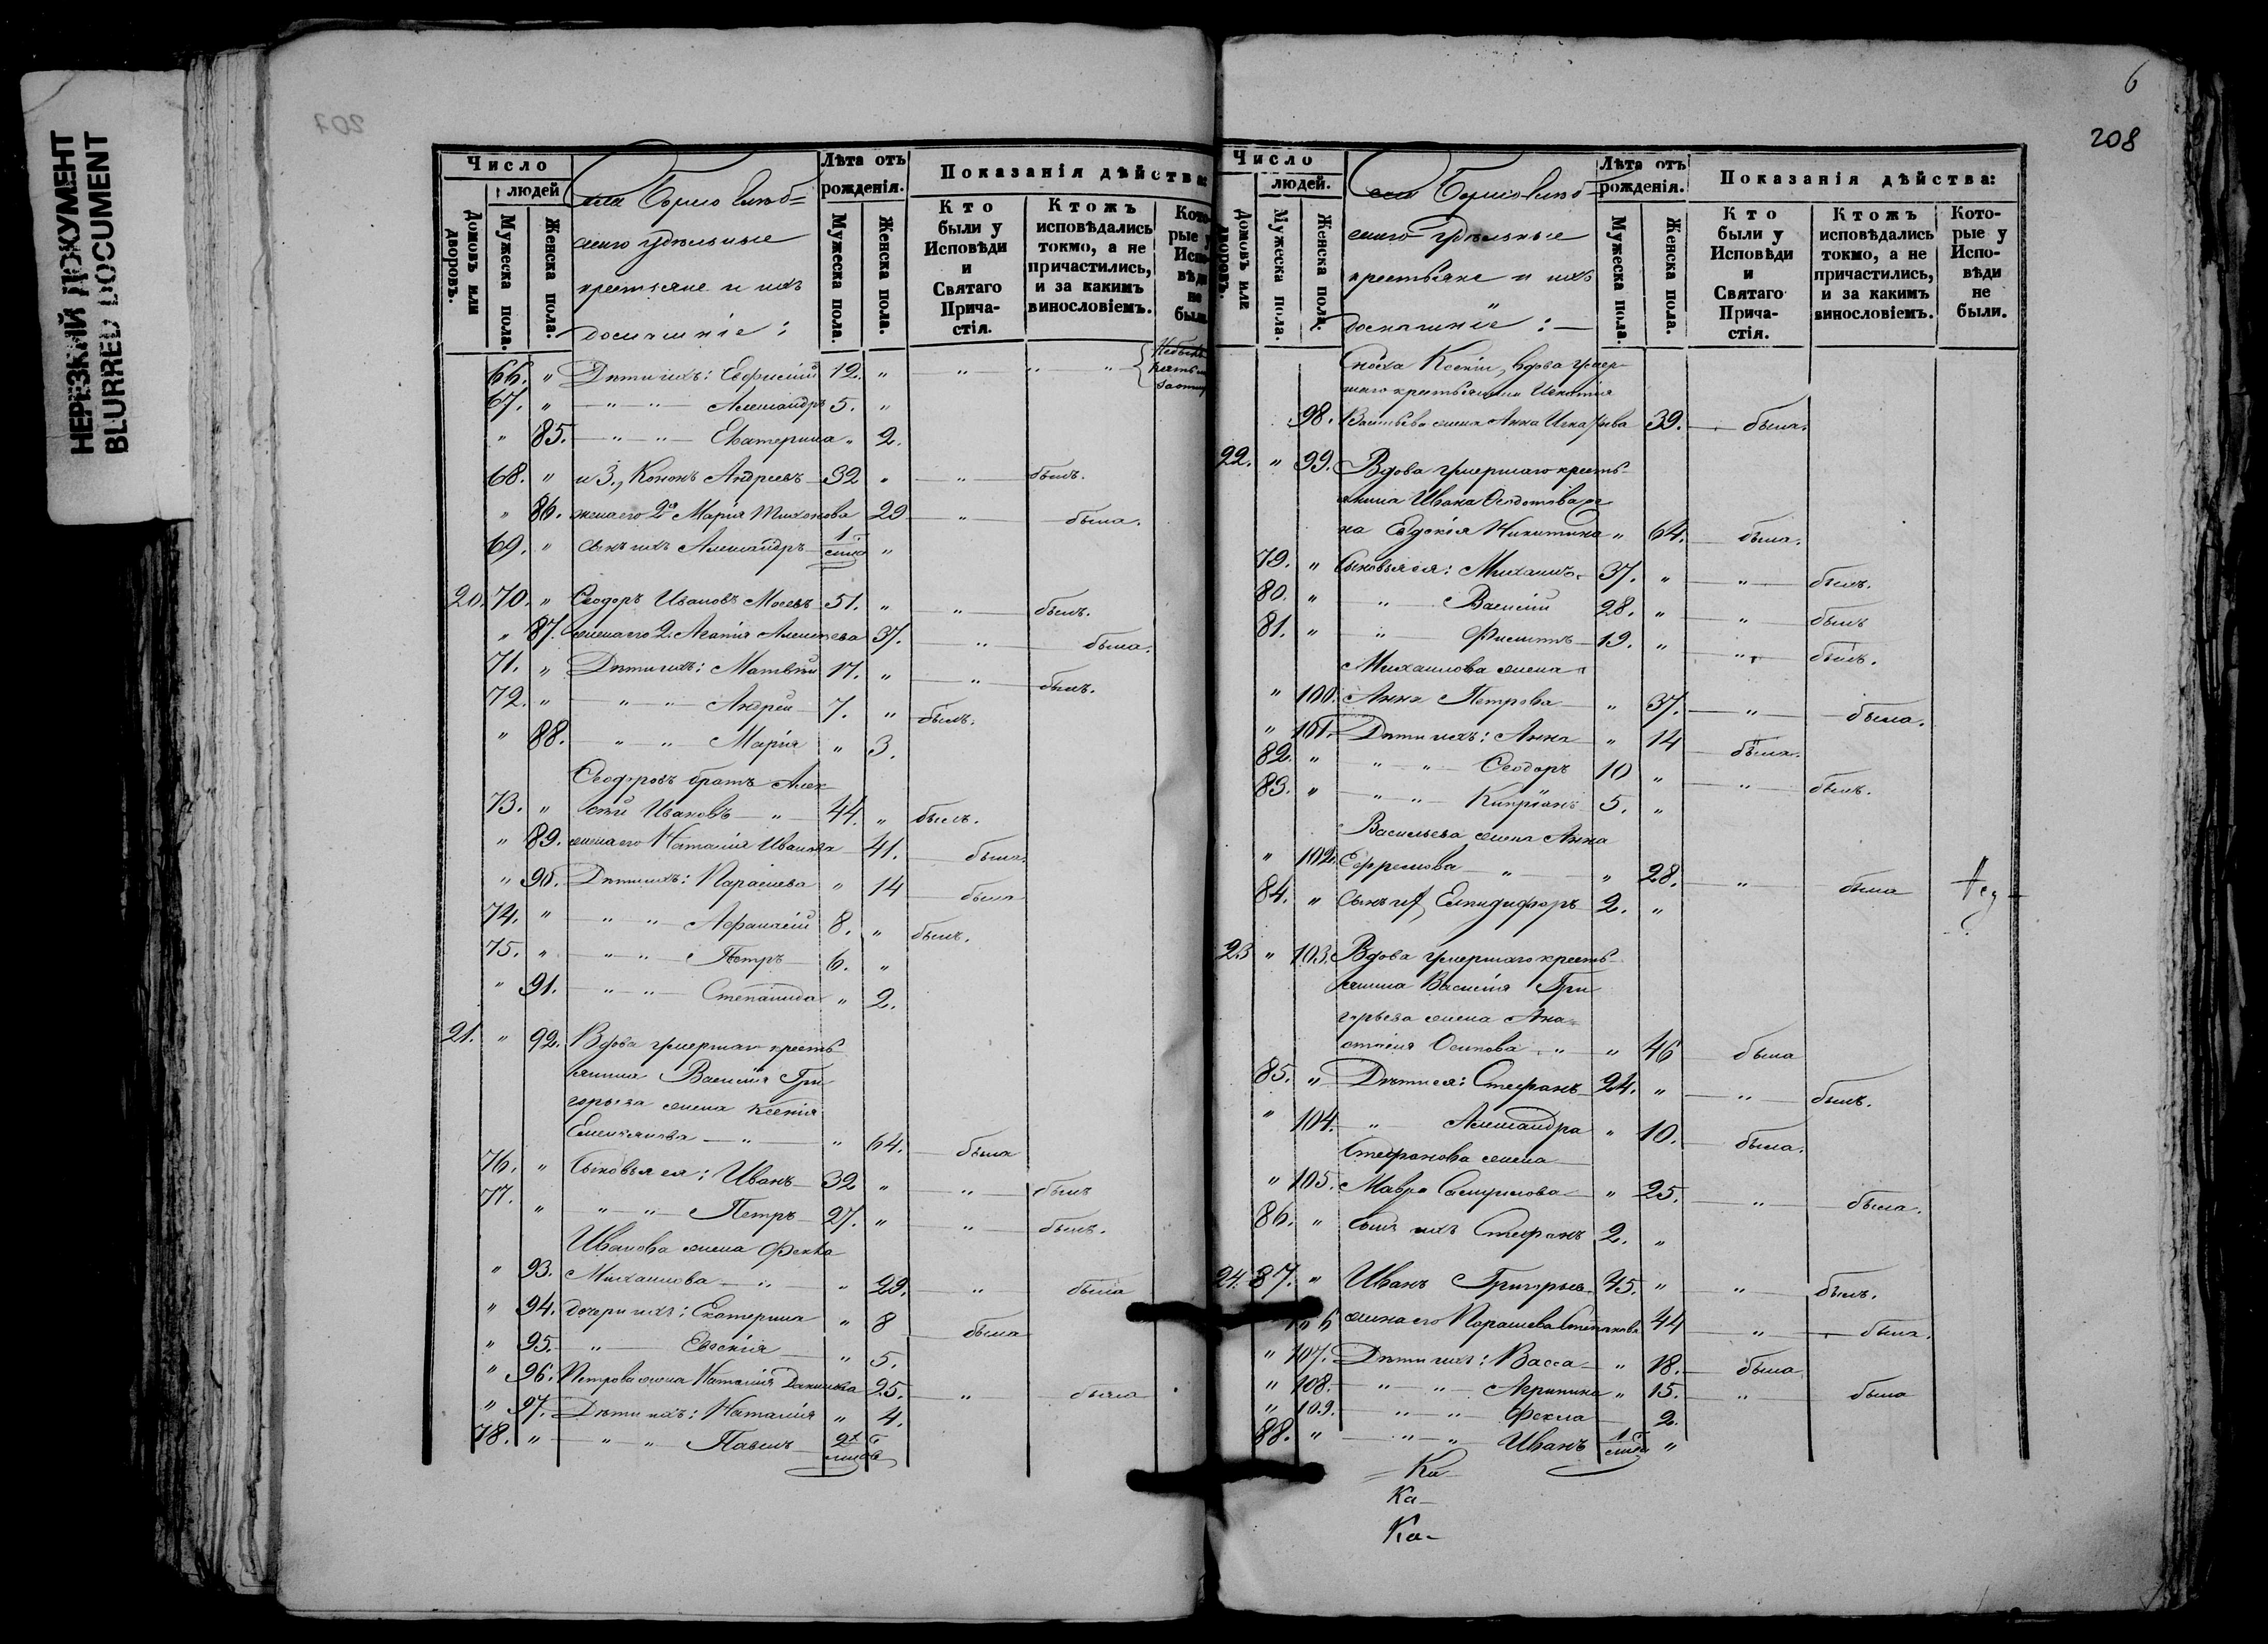 НЕРЕЗКИЙ ДОКУМЕНТ
BLURRED DOCUMENT
207
Число
людей
Домовъ или дворовъ.
Мужеска пола.
Женска пола.
удѣльные
крестьяне и ихъ
домашніе:
Лѣта отъ рожденія.
Мужеска пола.
Женска пола.
Показанія дѣйства:
Кто были у Исповѣди и Святаго Причастія.
Ктожъ исповѣдались токмо, а не причастились, и за какимъ винословіемъ.
Которые у Исповѣди не были.
66. " Дѣти ихъ: 12. " " " "
67. " " " Александръ 5. "
" 85. " " Екатерина " 2.
68. " и 3., Кононъ Андреевъ 32 " " былъ.
" 86. жена его 2я Марія Тихонова 29 " была.
69. " сынъ ихъ Александръ 1 "
20. 70. " Ѳеодоръ Ивановъ 51. " " былъ.
" 87. жена его 2. Агаѳія Алексѣева 37. " была.
71. " Дѣти ихъ: Матвѣй 17. " " былъ.
72. " " " Андрей 7. " былъ.
" 88. " " Марія " 3.
Ѳеодоровъ братъ Алек
73. " сѣй Ивановъ " 44. " былъ.
" 89. жена его Наталія Иванова 41. была.
" 90. Дѣти ихъ: Параскева " 14 была
74. " " " Аѳанасій 8. " былъ.
75. " " " Петръ 6. "
" 91. " " Степанида " 2.
21. " 92. Вдова умершаго кресть
янина Василія Гри
горьева жена Ксенія
Емельянова " " 64. была
76. " Сыновья ея: Иванъ 32 " " былъ
77. " " " Петръ 27. " " былъ.
Иванова жена Фекла
" 93. Михаилова " " 29. " была
" 94. дочери ихъ: Екатерина " 8 была
" 95. " Евдокія " 5.
" 96. Петрова жена Наталія Данилова 25. " была
" 97. Дѣти ихъ: Наталія " 4.
78. " " " Павелъ 2х
6
208
Число
людей.
Домовъ или дворовъ.
Мужеска пола.
Женска пола.
удѣльные
крестьяне и ихъ
домашніе:
Лѣта отъ рожденія.
Мужеска пола.
Женска пола.
Показанія дѣйства:
Кто были у Исповѣди и Святаго Причастія.
Ктожъ исповѣдались токмо, а не причастились, и за какимъ винословіемъ.
Которые у Исповѣди не были.
Сноха Ксеніи, вдова умер
шаго крестьянина
98. жена Анна 39. была.
22. " 99. Вдова умершаго кресть
янина Ивана Ѳедотова же
на Евдокія Никитина " 64. была.
79. " Сыновья ея: Михаилъ 37. " " былъ.
80. " " Василій 28. " " былъ
81. " " Филиппъ 19. " " былъ.
Михаилова жена
" 100. Анна Петрова " 37. " была.
" 101. Дѣти ихъ: Анна " 14 была.
82. " " " Ѳеодоръ 10 " " былъ.
83. " " " Кипріанъ 5. "
Васильева жена Анна
" 102. Ефремова " " 28. " была
84. " Сынъ их Елпидифоръ 2. "
23 " 103. Вдова умершаго кресть
янина Василія Гри
горьева жена Ана
стасія Осипова " " 46 была
85. " Дѣти ея: Стефанъ 24. " " былъ.
" 104. " Александра " 10. была.
Стефанова жена
" 105. Мавра Самуилова " 25. " была.
86. " Сынъ ихъ Стефанъ 2. "
24. 87. " Иванъ Григорьев. 45. " " былъ.
106 жена его Параскева Степанова 44 " была.
" 107. Дѣти ихъ: Васса " 18. была
" 108. " " Агрипина " 15. " была
" 109. " " Фекла 2.
88. " " " Иванъ 1 "
Ка-
Ка-
Ка-